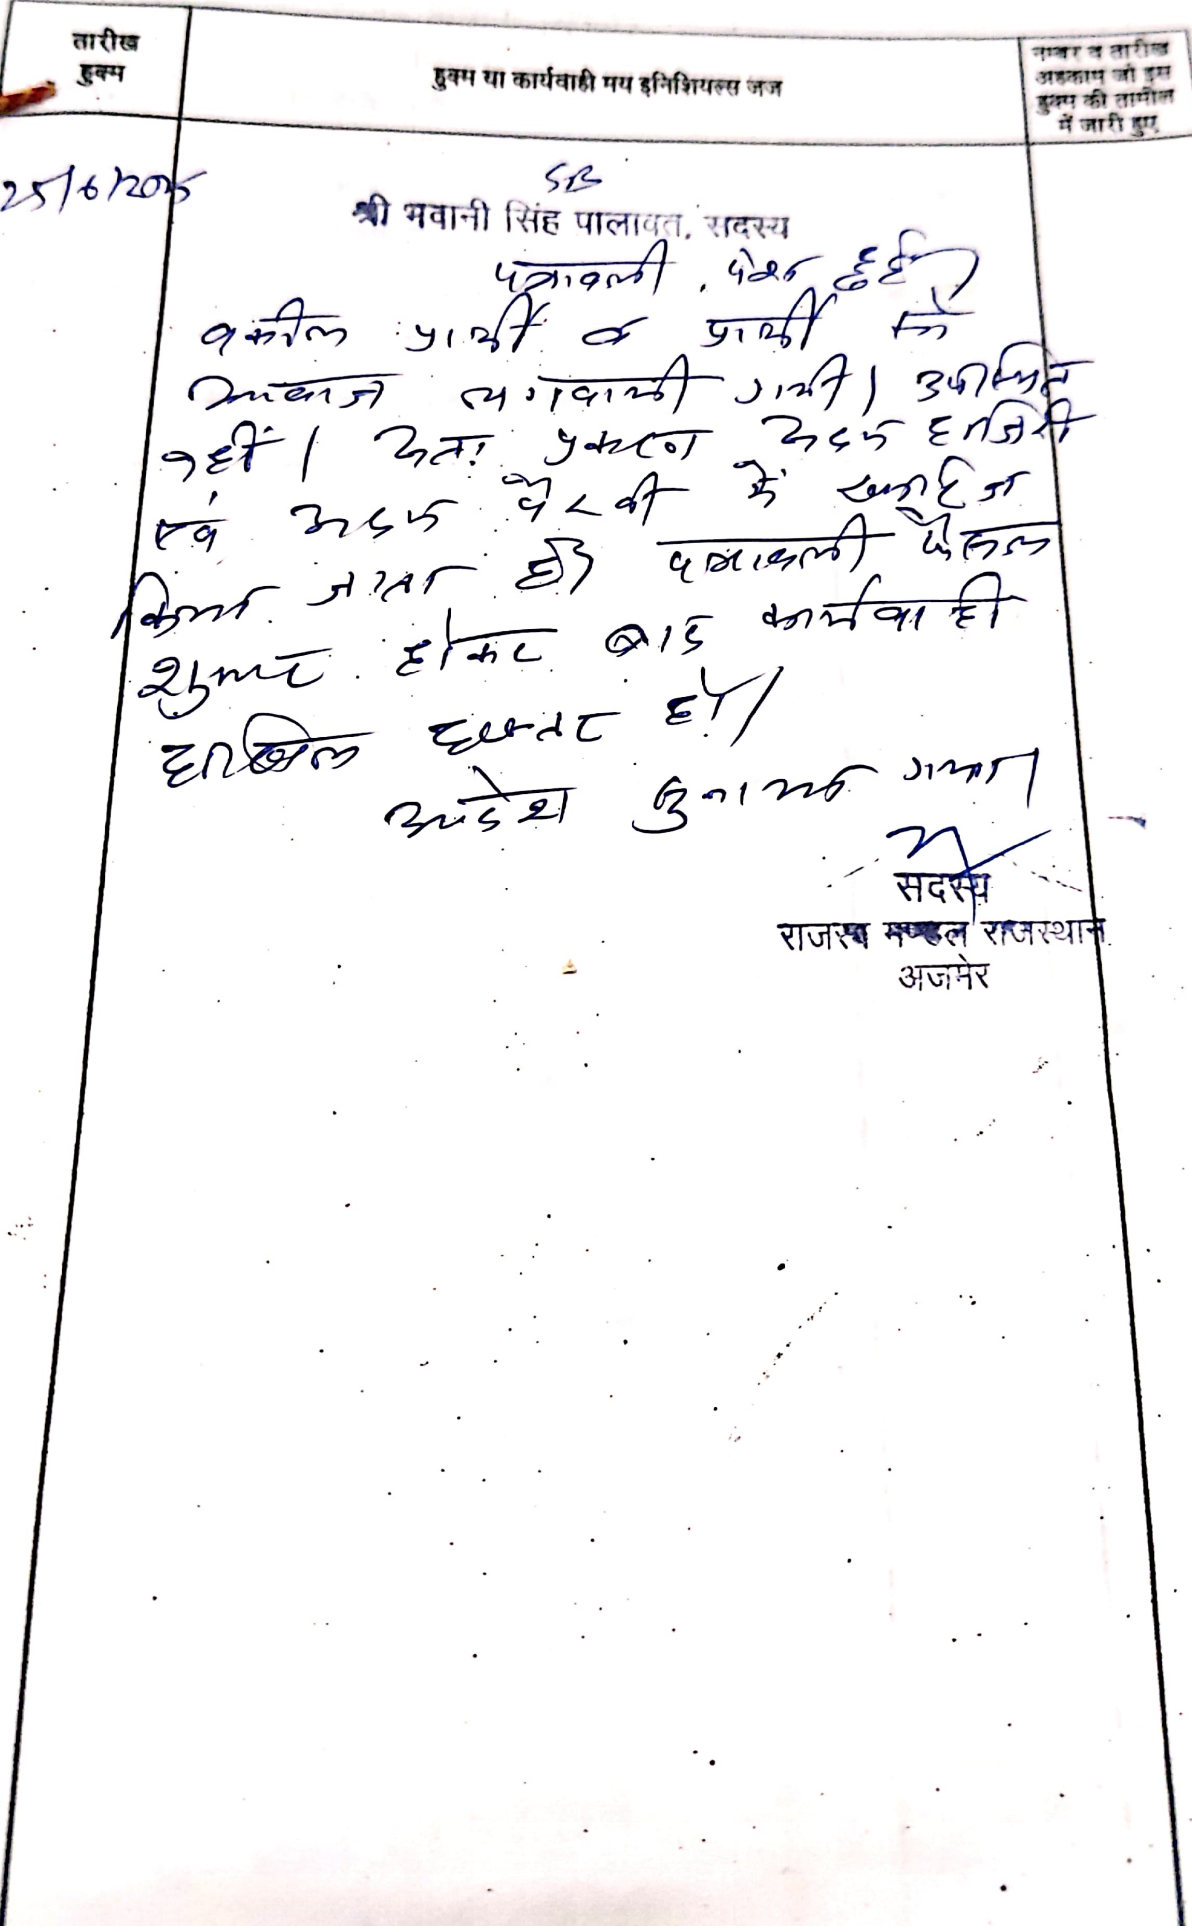 तारीख
हुक्म
हुक्म या कार्यवाही मय इनिशियल्स जज
नम्बर व तारीख
अहकाम जो इस
हुक्म की तामील
में जारी हुए
25/6/2025
SB
श्री भवानी सिंह पालावत, सदस्य
पत्रावली पेश हुई।
वकील प्रार्थी व प्रार्थी को
आवाज लगवायी गयी। उपस्थित
नहीं। अतः प्रकरण अदम हाजिरी
एवं अदम पैरवी में खारिज
किया जाता है। पत्रावली फैसल
शुमार होकर बाद कार्यवाही
दाखिल दफ्तर हो।
आदेश सुनाया गया।
सदस्य
राजस्व मण्डल राजस्थान
अजमेर